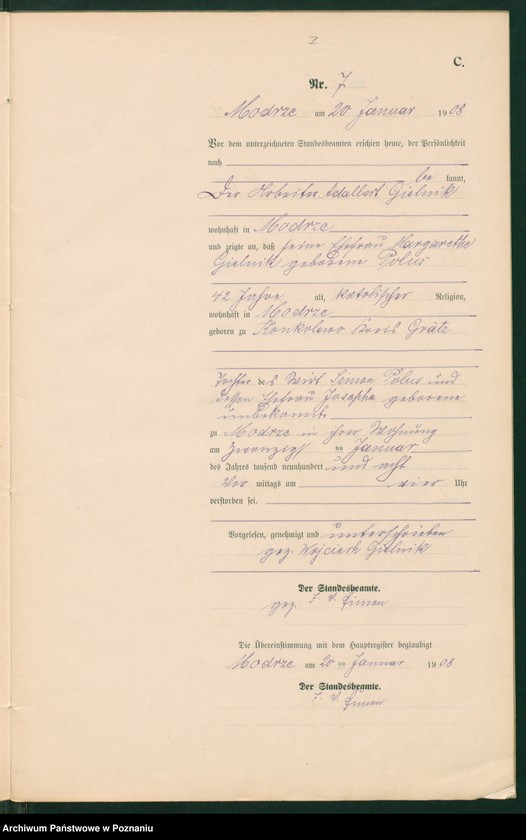 C.
Nr. 7
Modrze am 20 Januar 1908
Vor dem unterzeichneten Standesbeamten erschien heute, der Persönlichkeit
nach
be kannt,
Der Arbeiter Adalbert Gielnik
wohnhaft in Modrze
und zeigte an, daß seine Ehefrau Margarethe
Gielnik geborene Polus
42 Jahre alt, katolischer Religion,
wohnhaft in Modrze
geboren zu Konkolewo Kreis Grätz
Tochter des Wirt Simon Polus und
dessen Ehefrau Josepha geborene
unbekannt
zu Modrze in ihrer Wohnung
am Zwanzigst ten Januar
des Jahres tausend neunhundert und acht
Vor mittags um vier Uhr
verstorben sei.
Vorgelesen, genehmigt und unterschrieben
gez. Wojciech Gielnik
Der Standesbeamte.
gez.
Die Übereinstimmung mit dem Hauptregister beglaubigt
Modrze am 20 ten Januar 1908
Der Standesbeamte.
Archiwum Państwowe w Poznaniu